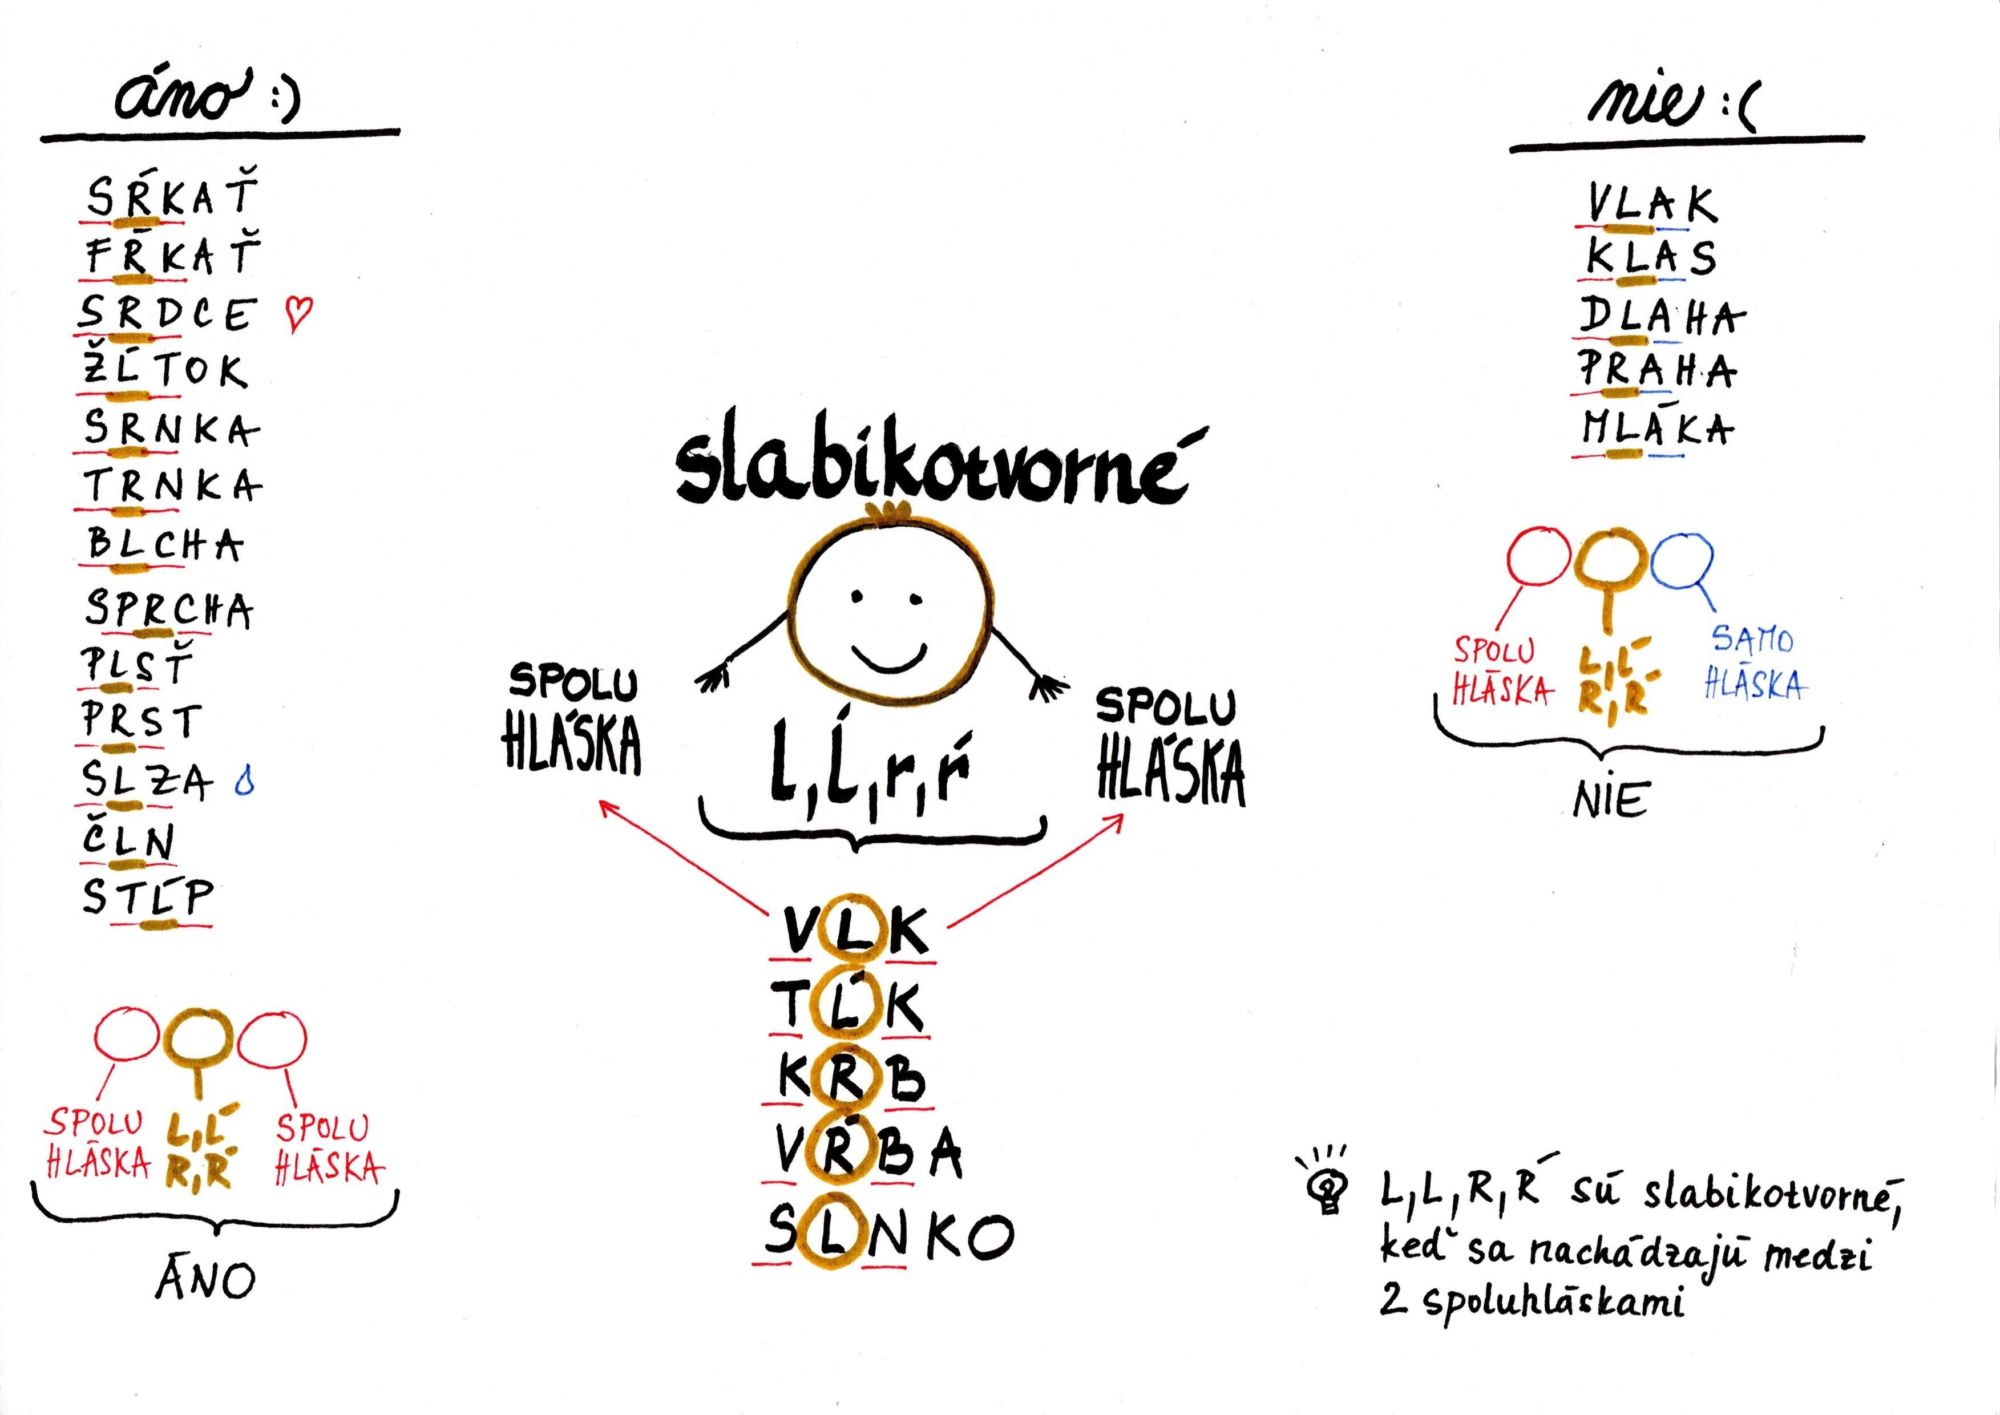 áno :)
SŔKAŤ
FŔKAŤ
SRDCE
ŽĹTOK
SRNKA
TRNKA
BLCHA
SPRCHA
PLSŤ
PRST
SLZA
ČLN
STĹP
SPOLU
HLÁSKA
L,Ĺ
R,Ŕ
SPOLU
HLÁSKA
ÁNO
slabikotvorné
SPOLU
HLÁSKA
l,ĺ,r,ŕ
SPOLU
HLÁSKA
VLK
TĹK
KRB
VŔBA
SLNKO
nie :(
VLAK
KLAS
DLAHA
PRAHA
MLÁKA
SPOLU
HLÁSKA
L,Ĺ
R,Ŕ
SAMO
HLÁSKA
NIE
L,L,R,Ŕ sú slabikotvorné,
keď sa nachádzajú medzi
2 spoluhláskami